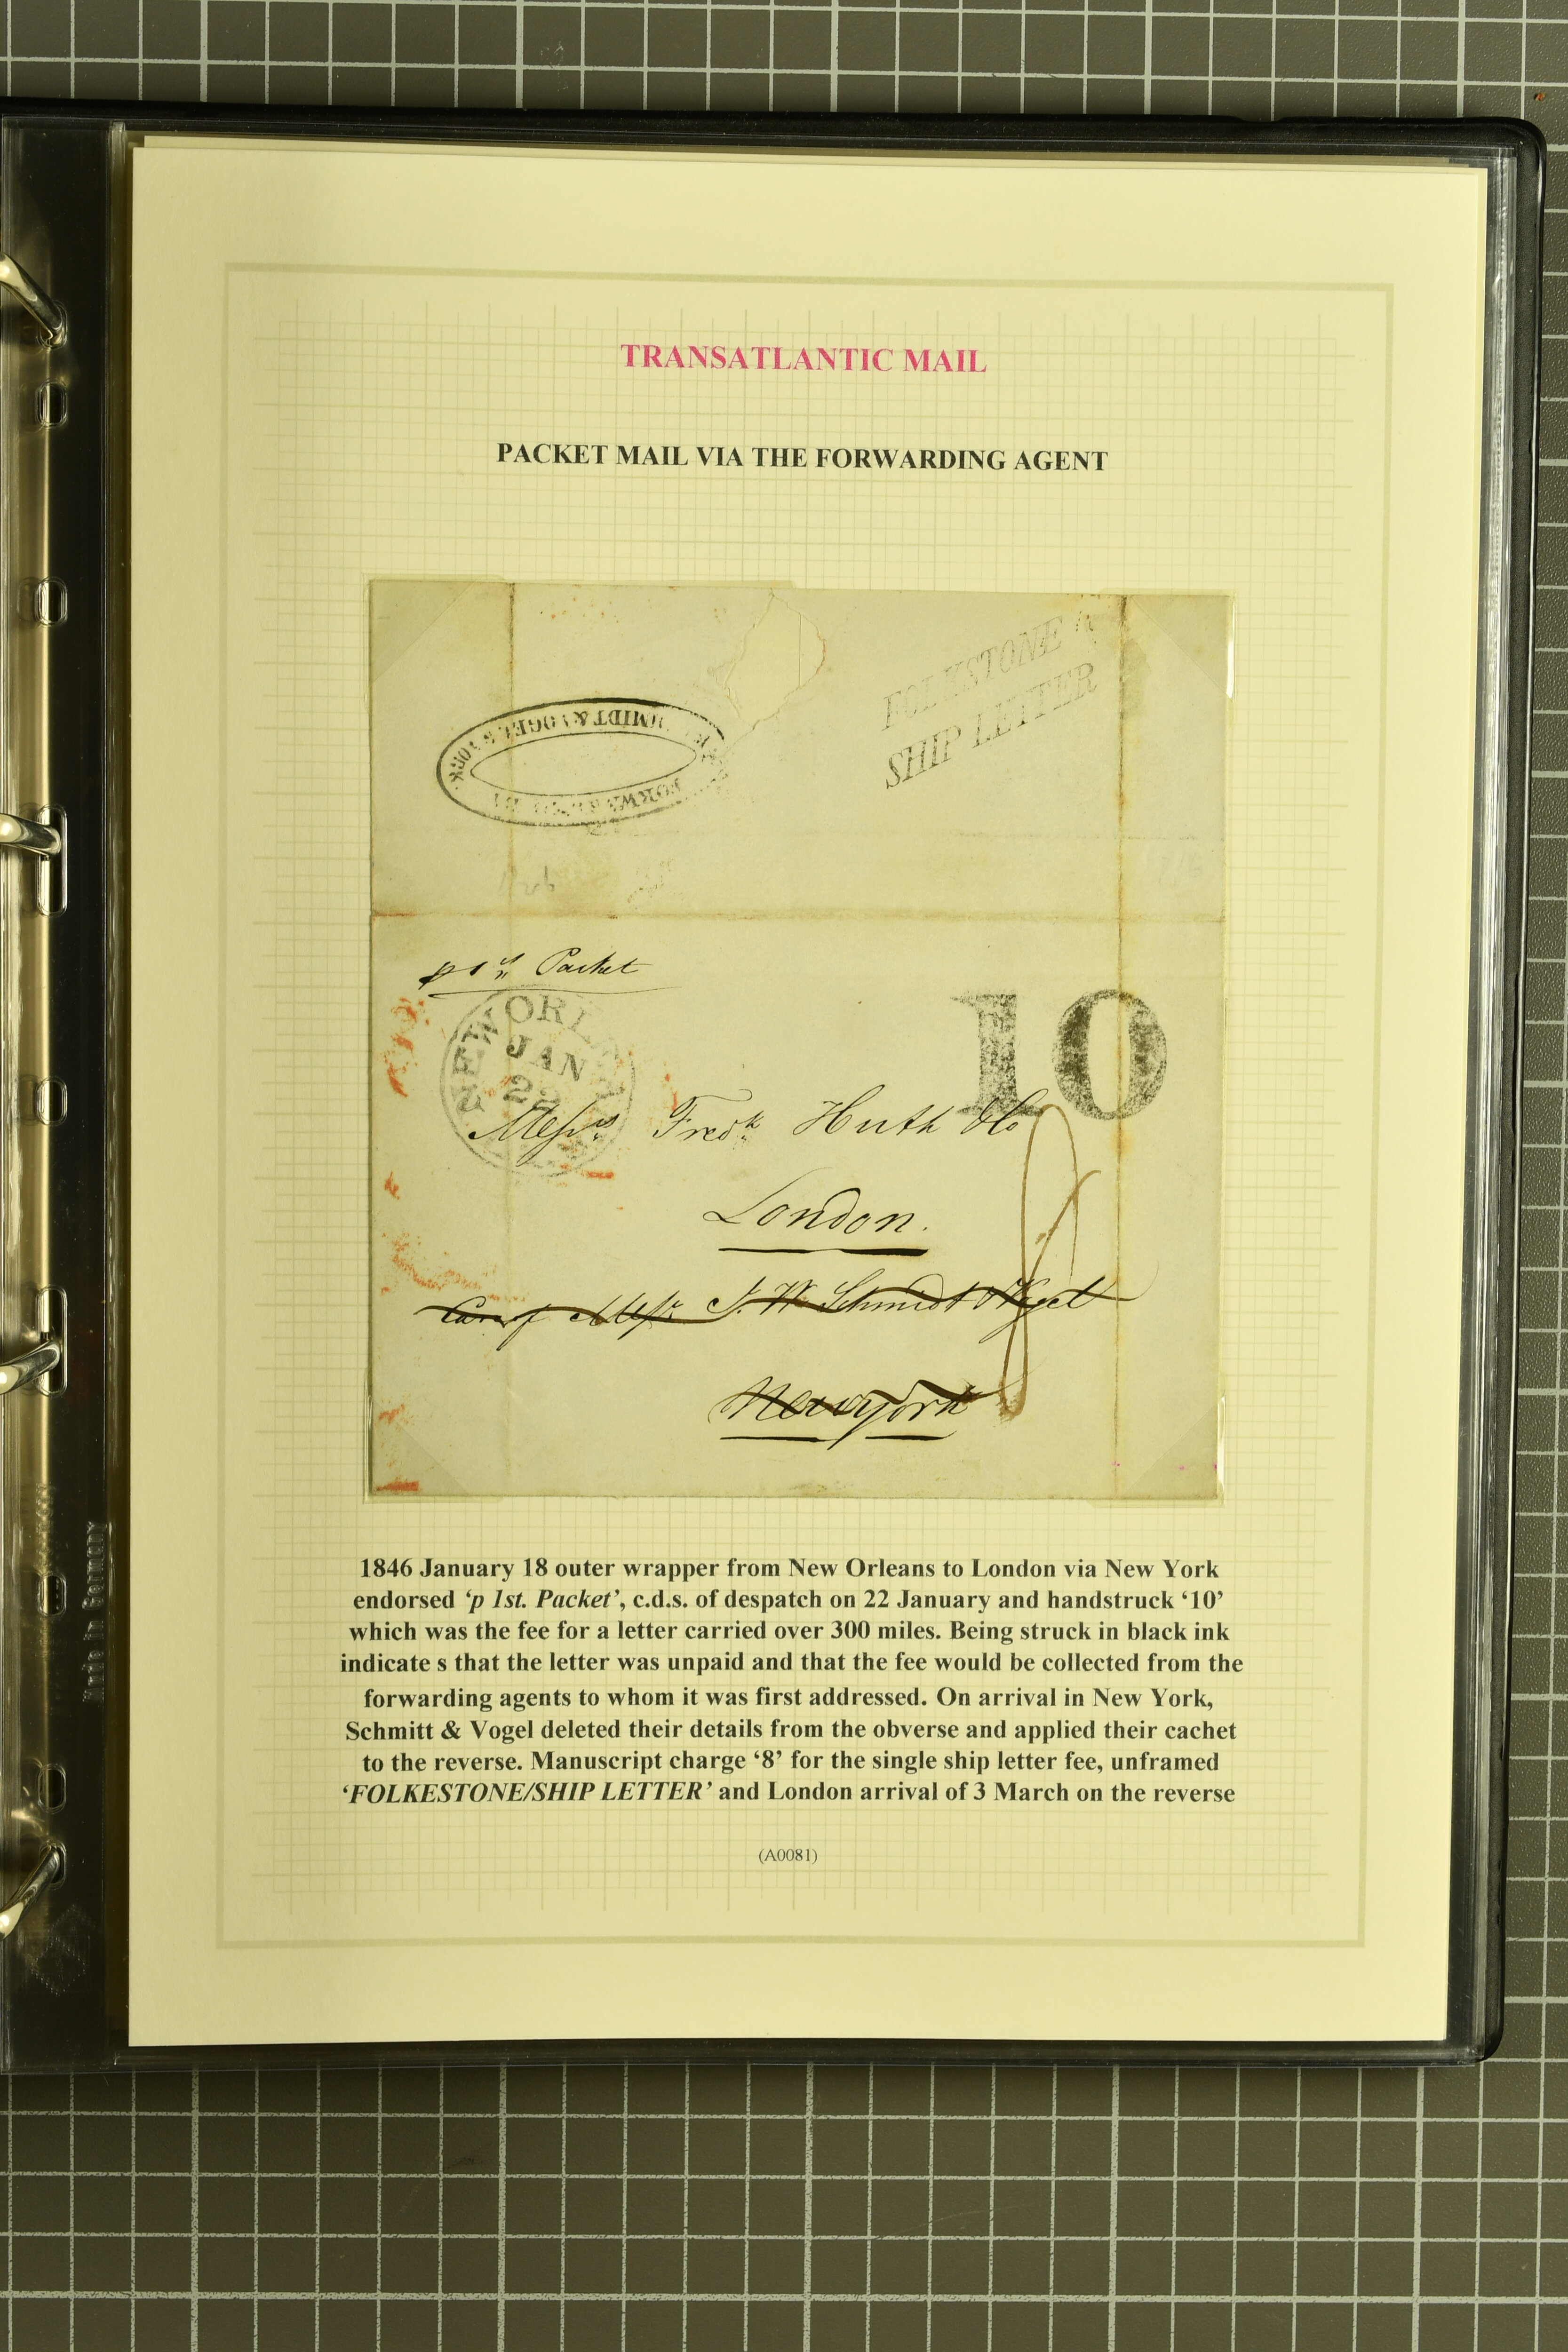 TRANSATLANTIC MAIL
PACKET MAIL VIA THE FORWARDING AGENT
FOLKSTONE
SHIP LETTER
p 1st Packet
JAN
22
10
Messrs Fredk Huth & Co
London.
Care of Messrs J. W. Schmidt & Vogel
New york
1846 January 18 outer wrapper from New Orleans to London via New York
endorsed ‘p 1st. Packet’, c.d.s. of despatch on 22 January and handstruck ‘10’
which was the fee for a letter carried over 300 miles. Being struck in black ink
indicate s that the letter was unpaid and that the fee would be collected from the
forwarding agents to whom it was first addressed. On arrival in New York,
Schmitt & Vogel deleted their details from the obverse and applied their cachet
to the reverse. Manuscript charge ‘8’ for the single ship letter fee, unframed
‘FOLKESTONE/SHIP LETTER’ and London arrival of 3 March on the reverse
(A0081)
Made in Germany